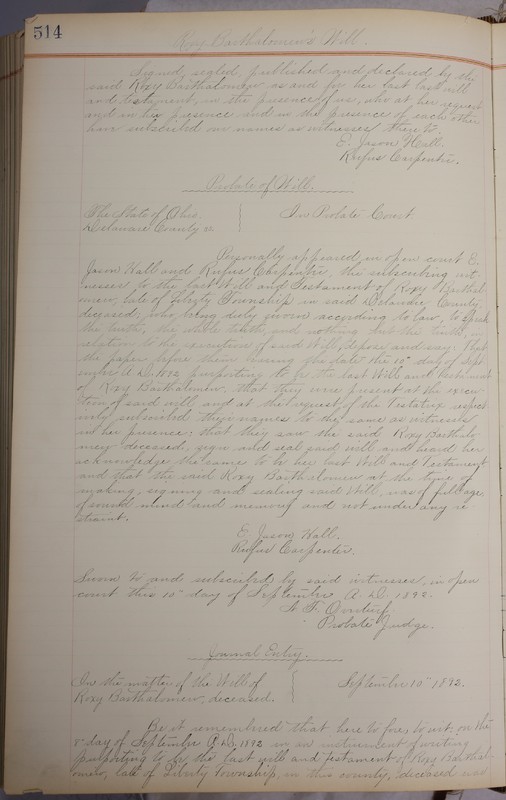 514
Roxy Barthalomew's Will.
Signed, sealed, published and declared by the
said Roxy Bartholomew as and for her last last will
and testament, in the presence of us, who at her request
and in her presence and in the presence of each other
have subscribed our names as witnesses there to.
E. Jason Hall.
Rufus Carpenter.
Probate of Will.
The State of Ohio,
Delaware County ss
In Probate Court
Personally appeared in open court E.
Jason Hall and Rufus Carpenter, the subscribing wit-
nesses to the last Will and Testament of Roxy Barthol-
omew, late of Liberty Township in said Delaware County,
deceased, who being duly sworn according to law, to speak
the truth, the whole truth, and nothing but the truth
relation to the execution of said Will, depose and say: That
the paper before them having the date the 10" day of Sept
ember A.D. 1892 purporting to be the last Will and Testament
of Roxy Bartholomew, that they were present at the execu
tion of said will and at the request of the Testatrix respect
ively subscribed their names to the same as witnesses
in her presence; that they saw the said Roxy Bartholo
mew deceased, sign and seal said will and heard her
acknowledge the same to be her last Will and Testament
and that the said Roxy Bartholomew at the time of
making, signing and sealing said Will, was of full age
of sound mind and memory and not under any re
straint.
E. Jason Hall.
Rufus Carpenter.
Sworn to and subscribed by said witnesses, in open
court this 10" day of September A.D. 1892.
F. Overturf
Probate Judge.
Journal Entry.
In the matter of the Will of
Roxy Barthalomew, deceased.
September 10" 1892.
Be it remembered that here to fore, to wit, on the
day of September A.D. 1892 in an instrument of writing
purporting to be the last will and testament of Roxy Barthal-
omew, late of Liberty Township, in this county, deceased was